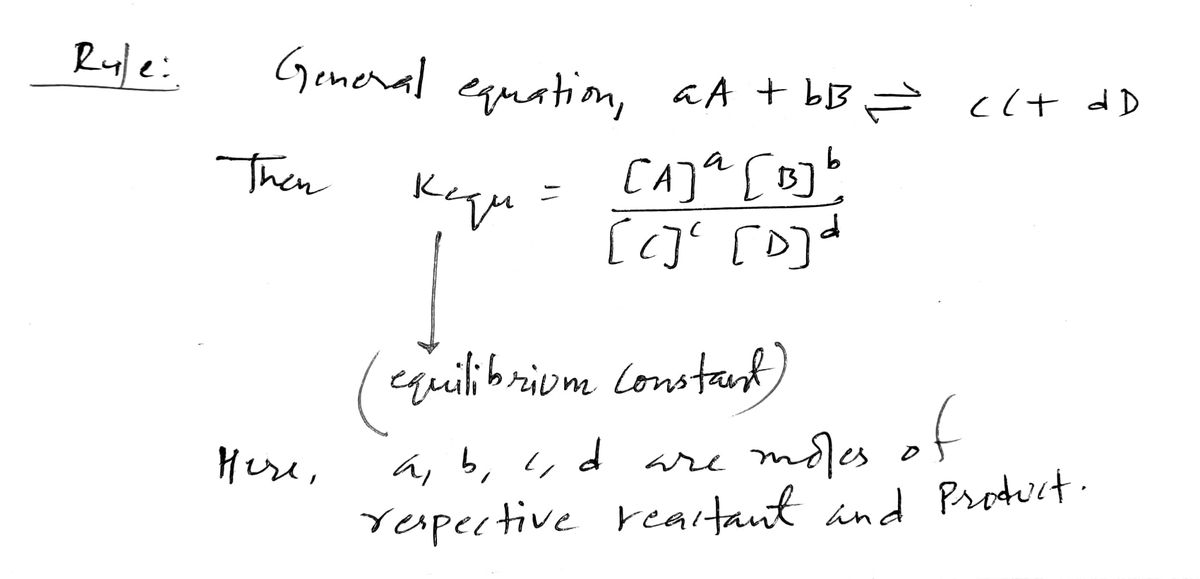 Rule: General equation, aA + bB ⇌ cC + dD
Then Kequ = [A]^a [B]^b / [C]^c [D]^d
(equilibrium constant)
Here, a, b, c, d are moles of
respective reactant and Product.